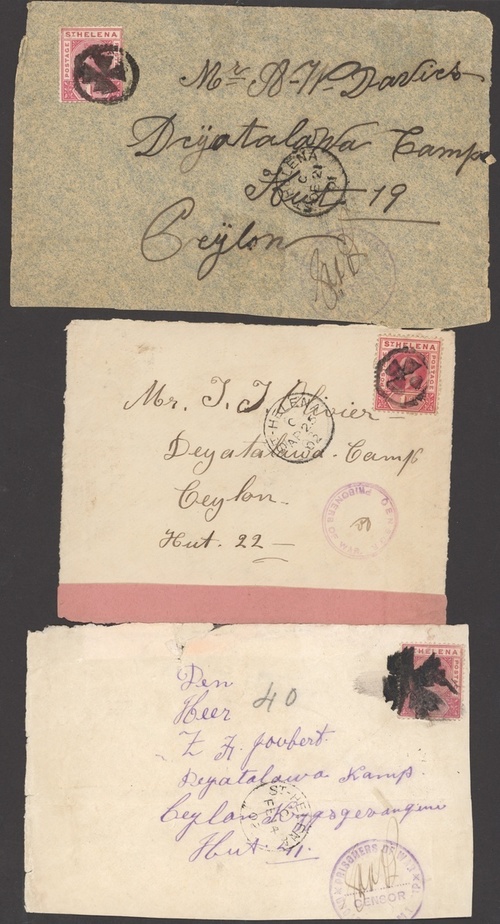 ST HELENA
POSTAGE
Mr A. W. Davies
Deyatalawa Camp
Hut 19
Ceylon
ST. HELENA
C
DE 21
01
ST HELENA
POSTAGE
Mr. J. J. Olivier
Deyatalawa. Camp
Ceylon.
Hut. 22
ST. HELENA
C
AP 25
02
PRISONERS
HELENA
POSTAGE
Den
Heer 40
Z A. Joubert.
Deyatalawa Kamp.
Ceylon Krygsgevangene
Hut. 11.
ST. HELENA
C
FE 4
PRISONERS OF WAR
CENSOR